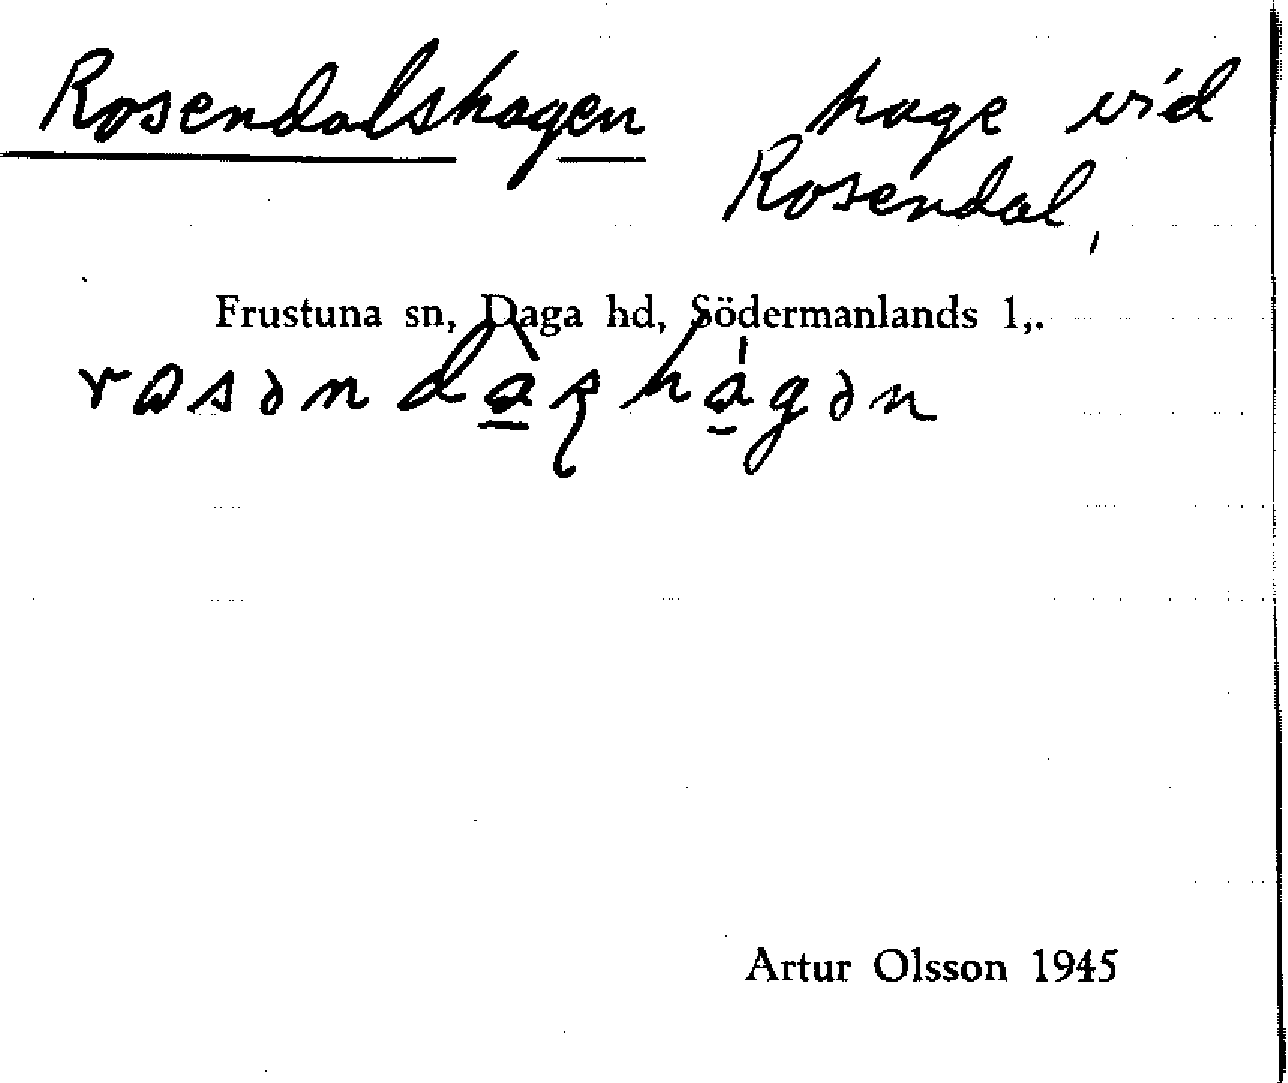 Rosendalshagen hage vid
Rosendal,
Frustuna sn, Daga hd, Södermanlands l,.
Artur Olsson 1945